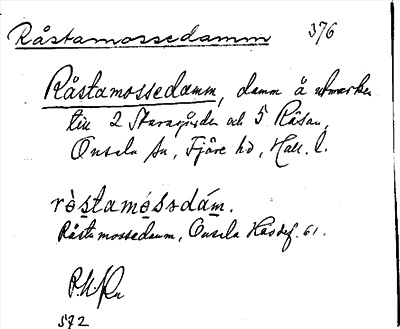 Råstamossedamm 376
Råstamossedamm, damm å utmarken
till 2 Staragården och 5 Råsan,
Onsala sn, Fjäre hd, Hall. l.
ròstamóssdám.
Råstamossedamm, Onsala Häradsf. 61.
572